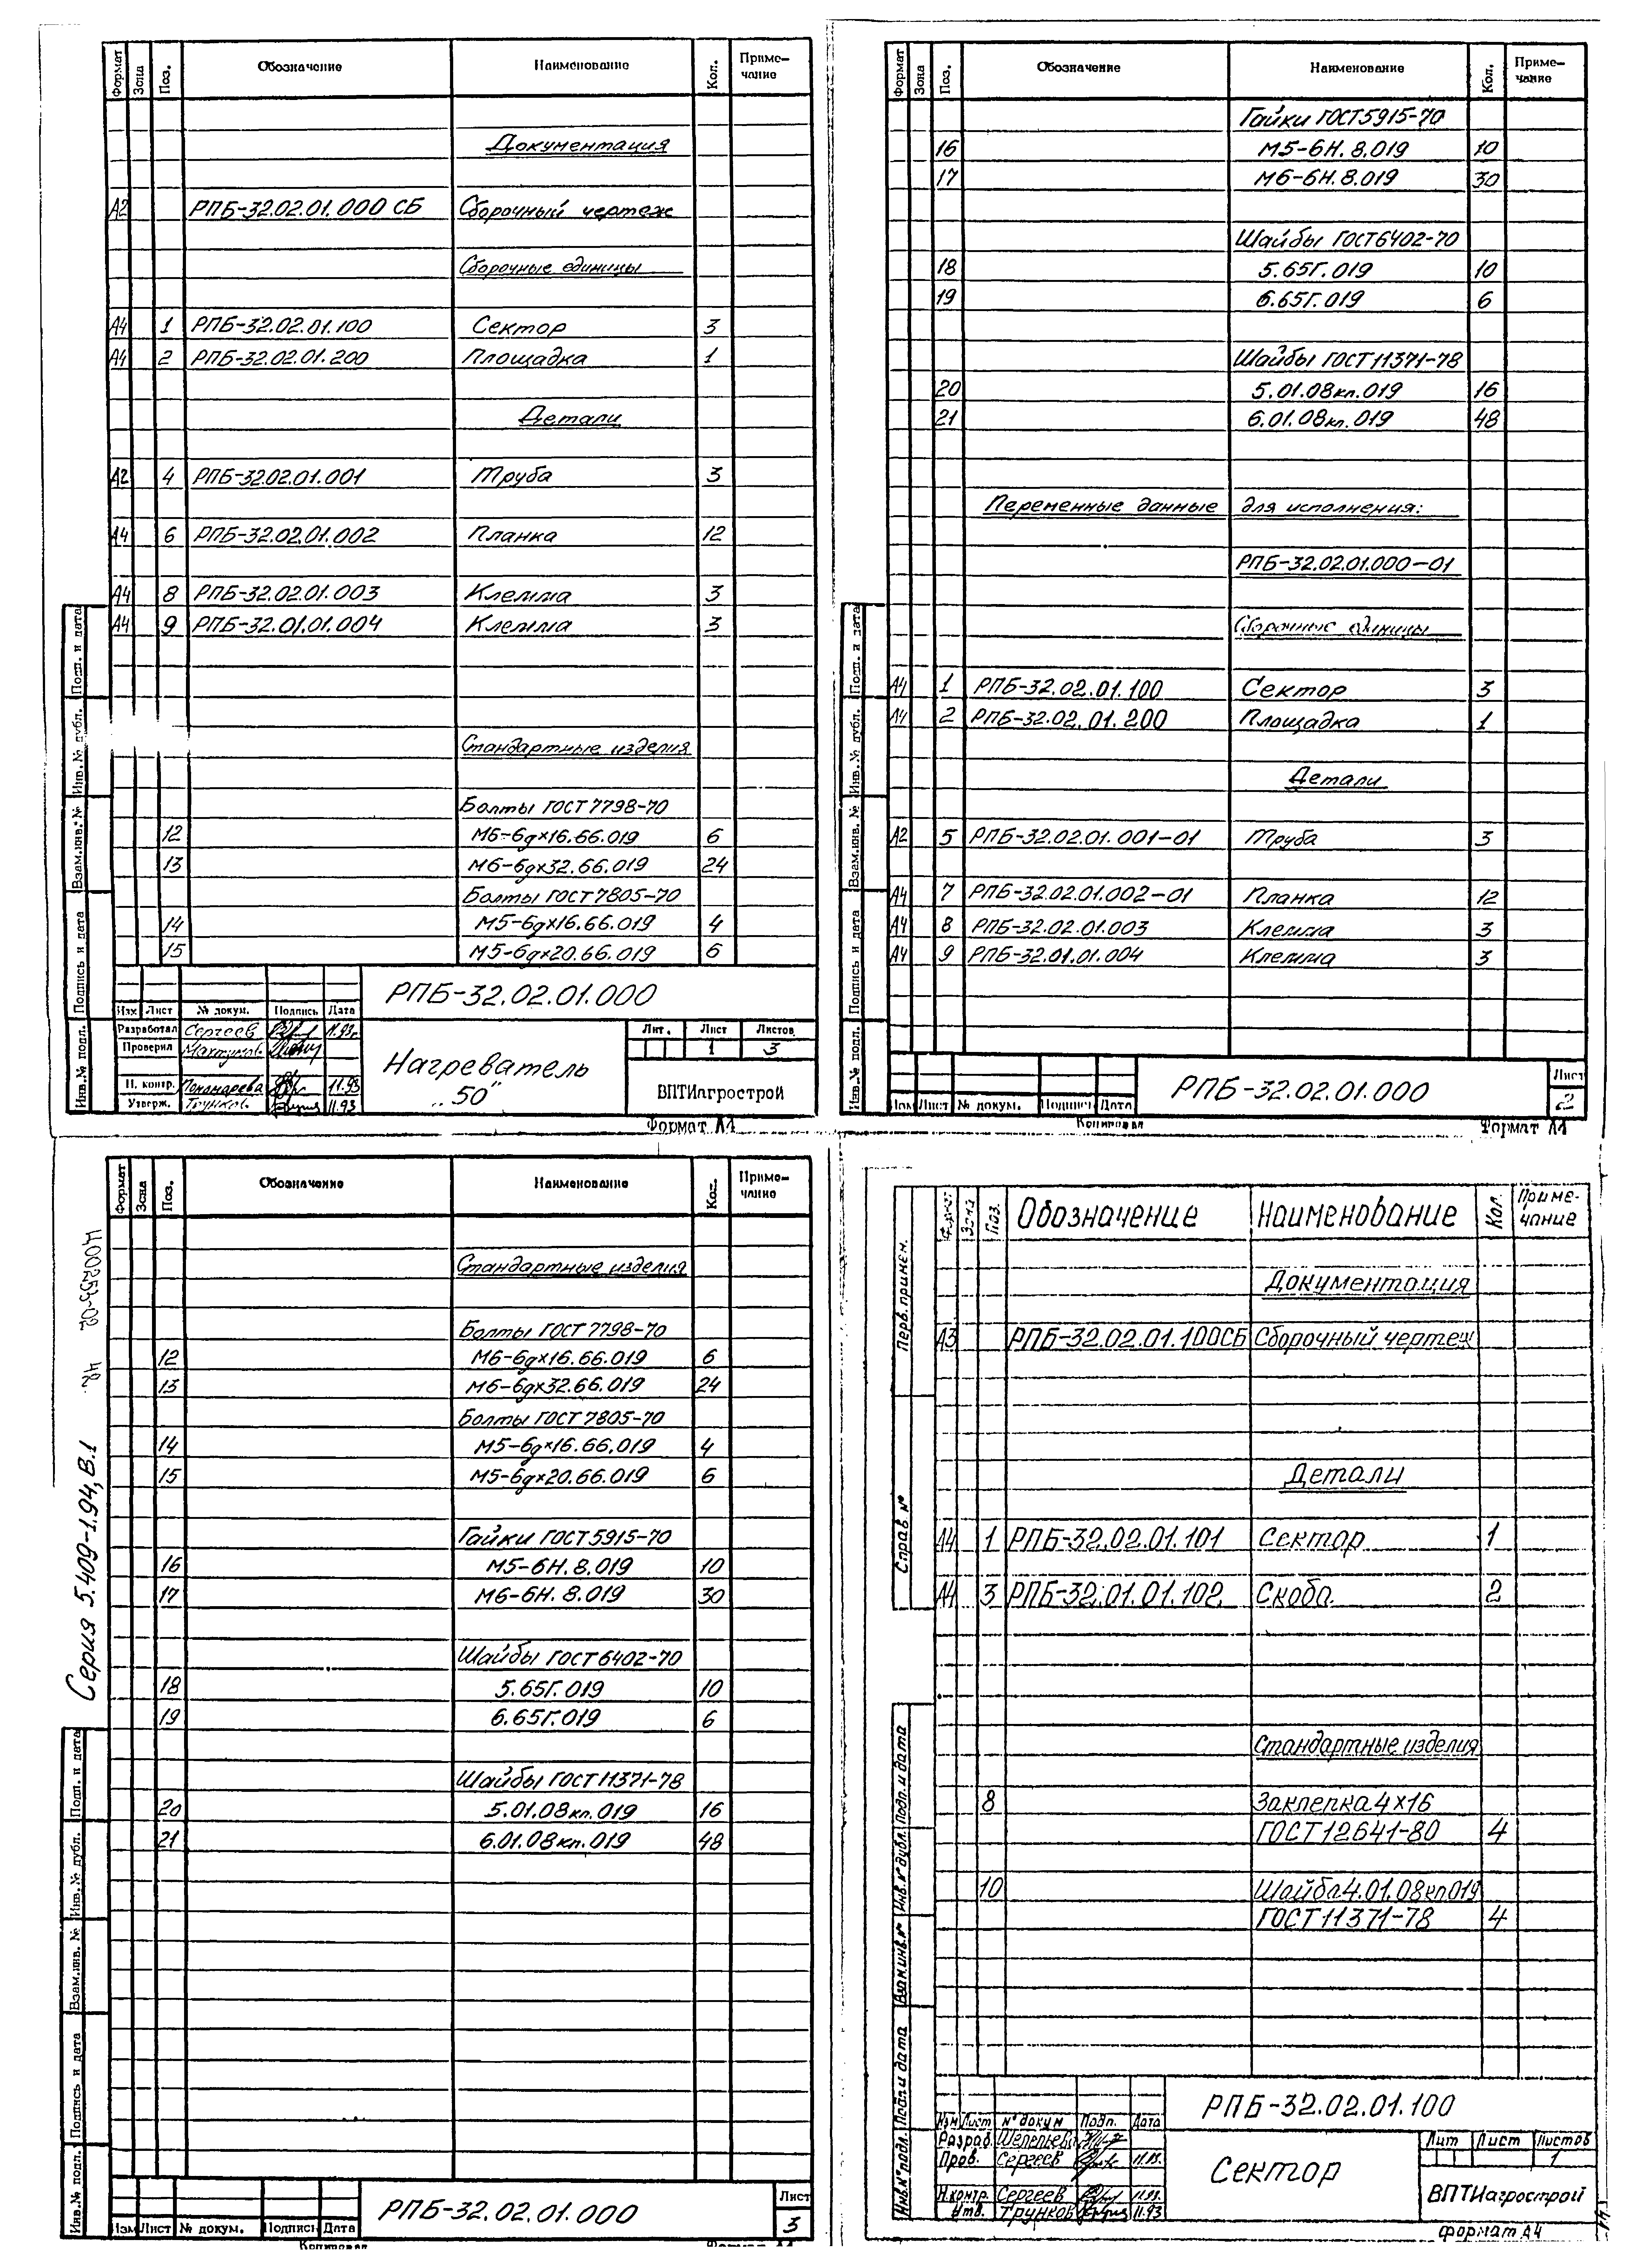 Формат Зона Поз. Обозначение Наименование Кол. Приме-
чание
Документация
А2 РПБ-32.02.01.000 СБ Сборочный чертеж
Сборочные единицы
А4 1 РПБ-32.02.01.100 Сектор 3
А4 2 РПБ-32.02.01.200 Площадка 1
Детали
А2 4 РПБ-32.02.01.001 Труба 3
А4 6 РПБ-32.02.01.002 Планка 12
А4 8 РПБ-32.02.01.003 Клемма 3
А4 9 РПБ-32.01.01.004 Клемма 3
Стандартные изделия
Болты ГОСТ 7798-70
12 М6-6gх16.66.019 6
13 М6-6gх32.66.019 24
Болты ГОСТ 7805-70
14 М5-6gх16.66.019 4
15 М5-6gх20.66.019 6
Инв.№ подл. Подпись и дата Взам.инв.№ Инв.№ дубл. Подп. и дата
РПБ-32.02.01.000
Изм Лист № докум. Подпись Дата
Разработал Сергеев 11.93г
Проверил
Н. контр. Пономарева 11.93
Утверж. Трунков 11.93
Нагреватель
„50"
Лит. Лист Листов
1 3
ВПТИагрострой
Формат А4
Формат Зона Поз. Обозначение Наименование Кол. Приме-
чание
Гайки ГОСТ 5915-70
16 М5-6Н.8.019 10
17 М6-6Н.8.019 30
Шайбы ГОСТ 6402-70
18 5.65Г.019 10
19 6.65Г.019 6
Шайбы ГОСТ 11371-78
20 5.01.08кп.019 16
21 6.01.08кп.019 48
Переменные данные для исполнения:
РПБ-32.02.01.000-01
Сборочные единицы
А4 1 РПБ-32.02.01.100 Сектор 3
А4 2 РПБ-32.02.01.200 Площадка 1
Детали
А2 5 РПБ-32.02.01.001-01 Труба 3
А4 7 РПБ-32.02.01.002-01 Планка 12
А4 8 РПБ-32.02.01.003 Клемма 3
А4 9 РПБ-32.01.01.004 Клемма 3
Инв.№ подл. Подпись и дата Взам.инв.№ Инв.№ дубл. Подп. и дата
Изм Лист № докум. Подпись Дата
РПБ-32.02.01.000
Лист
2
Копировал Формат А4
Формат Зона Поз. Обозначение Наименование Кол. Приме-
чание
Стандартные изделия
Болты ГОСТ 7798-70
12 М6-6gх16.66.019 6
13 М6-6gх32.66.019 24
Болты ГОСТ 7805-70
14 М5-6gх16.66.019 4
15 М5-6gх20.66.019 6
Гайки ГОСТ 5915-70
16 М5-6Н.8.019 10
17 М6-6Н.8.019 30
Шайбы ГОСТ 6402-70
18 5.65Г.019 10
19 6.65Г.019 6
Шайбы ГОСТ 11371-78
20 5.01.08кп.019 16
21 6.01.08кп.019 48
Серия 5.409-1.94, В.1
42
Ч00253-02
Инв.№ подл. Подпись и дата Взам.инв.№ Инв.№ дубл. Подп. и дата
Изм Лист № докум. Подпись Дата
РПБ-32.02.01.000
Лист
3
Копировал
Формат А4
Формат Зона Поз. Обозначение Наименование Кол. Приме-
чание
Документация
А3 РПБ-32.02.01.100СБ Сборочный чертеж
Детали
А4 1 РПБ-32.02.01.101 Сектор 1
А4 3 РПБ-32.01.01.102 Скоба 2
Стандартные изделия
8 Заклепка 4х16
ГОСТ 12641-80 4
10 Шайба 4.01.08кп019
ГОСТ 11371-78 4
Перв. примен.
Справ. №
Инв.№ подл. Подп. и дата Взам.инв.№ Инв.№ дубл. Подп. и дата
РПБ-32.02.01.100
Изм Лист № докум Подп. Дата
Разраб.
Пров. Сергеев 11.93.
Н.контр. Сергеев 11.93.
Утв. Трунков 11.93
Сектор
Лит Лист Листов
1
ВПТИагрострой
формат А4